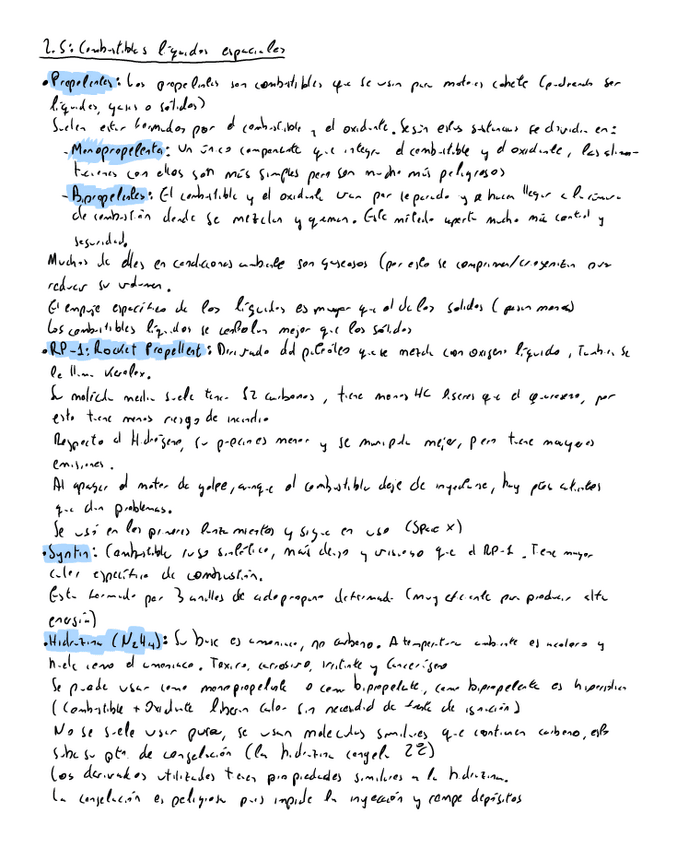 2.5: Combustibles líquidos espaciales
• Propelentes: Los propelentes son combustibles que se usan para motores cohete (pudiendo ser
líquidos, gases o sólidos)
Suelen estar formados por el combustible y el oxidante. Según estas sustancias se dividen en:
- Monopropelente: Un único componente que integra el combustible y el oxidante, las
con ellos son más simples pero son mucho más peligrosos
- Bipropelentes: El combustible y el oxidante van por separado y se hacen llegar a la cámara
de combustión donde se mezclan y queman. Este método aporta mucho más control y
seguridad.
Muchos de ellos en condiciones ambiente son gaseosos (por esto se comprimen/criogenizan para
reducir su volumen.
El empuje específico de los líquidos es mayor que el de los sólidos (pesan menos)
Los combustibles líquidos se controlan mejor que los sólidos
• RP-1: Rocket Propellent: Derivado del petróleo que se mezcla con oxígeno líquido, también se
le llama Kerolox.
Su molécula media suele tener 12 carbonos, tiene menos HC ligeros que el queroseno, por
esto tiene menos riesgo de incendio
Respecto al Hidrógeno, su precio es menor y se manipula mejor, pero tiene mayores
emisiones.
Al apagar el motor de golpe, aunque el combustible deje de inyectarse, hay ptos calientes
que dan problemas.
Se usó en los primeros lanzamientos y sigue en uso (Space X)
• Syntin: Combustible ruso sintético, más denso y viscoso que el RP-1. Tiene mayor
calor específico de combustión.
Esta formado por 3 anillos de ciclopropano determinado (muy eficiente para producir alta
energía)
• Hidrazina (N2H4): Su base es amoniaco, no carbono. A temperatura ambiente es incoloro y
huele como el amoniaco. Toxico, corrosivo, irritante y Cancerígeno
Se puede usar como monopropelente o como bipropelente, como bipropelente es hipergólico
(Combustible + Oxidante liberan calor sin necesidad de fuente de ignición)
No se suele usar pura, se usan moleculas similares que contienen carbono, esto
sube su pto. de congelación (la hidrazina congela 2ºC)
Los derivados utilizados tienen propiedades similares a la hidrazina.
La congelación es peligrosa pues impide la inyección y rompe depósitos